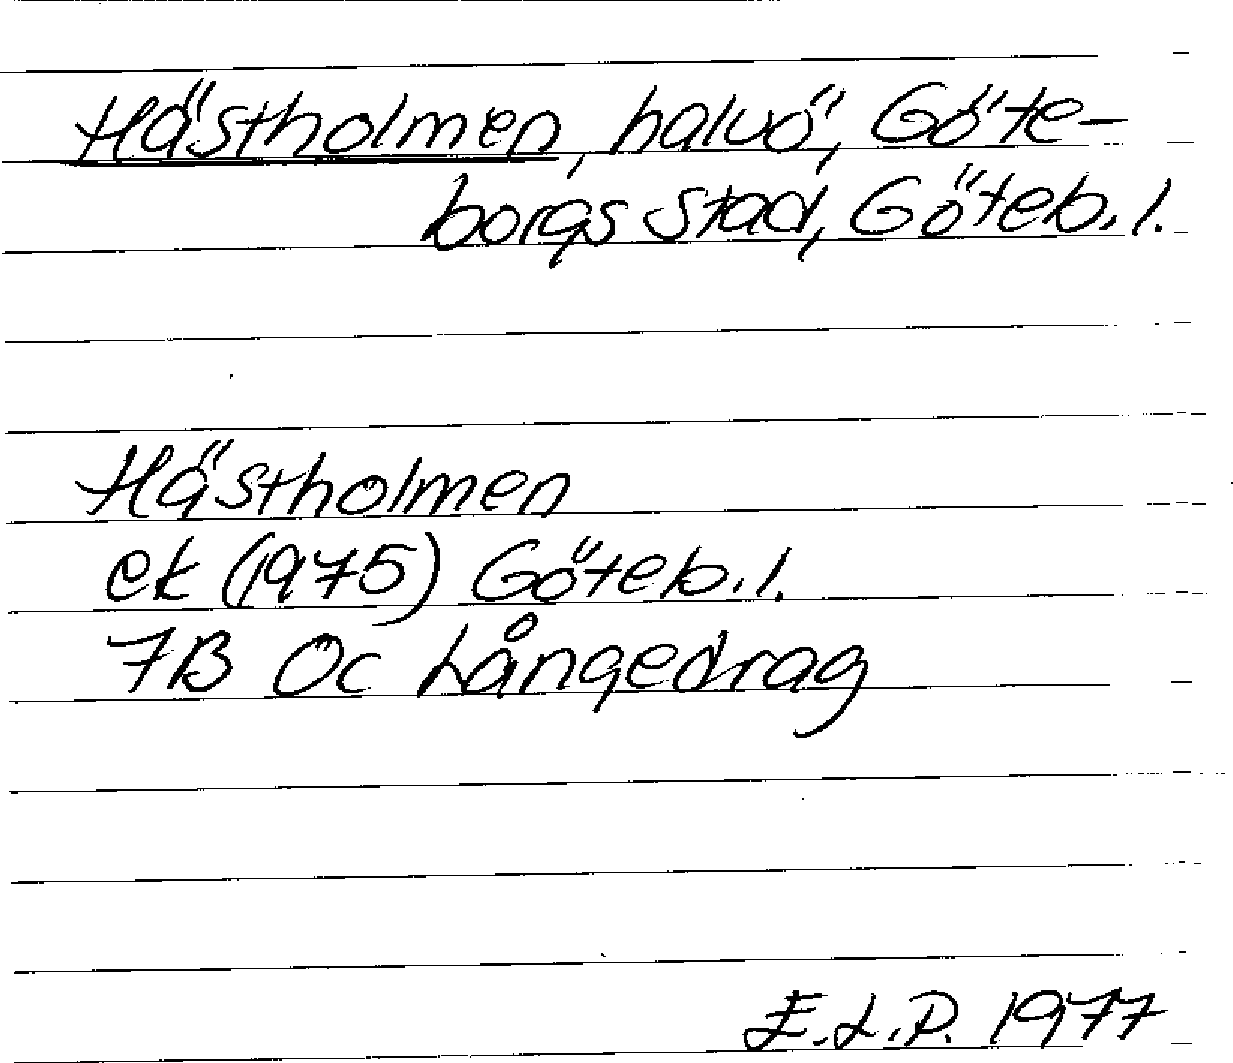 Hästholmen, halvö, Göte-
borgs stad, Göteb. l.
Hästholmen
ek (1975) Göteb. l.
7B 0c Långedrag
E.L.P. 1977